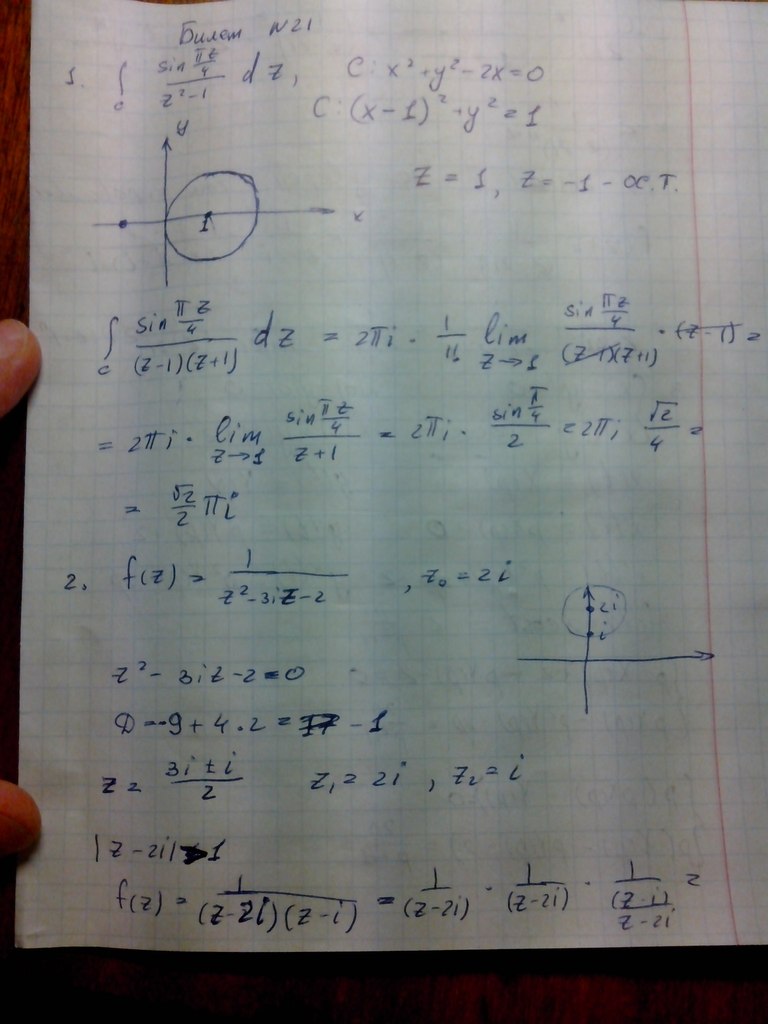 Билет №21
1. ∫_C (sin πz/4)/(z²-1) dz, C: x²+y²-2x=0
C: (x-1)²+y²=1
y
z = 1, z = -1 - ос.т.
1 x
∫_C (sin πz/4)/((z-1)(z+1)) dz = 2πi · 1/1! lim_{z→1} (sin πz/4)/((z-1)(z+1)) · (z-1) =
= 2πi · lim_{z→1} (sin πz/4)/(z+1) = 2πi · (sin π/4)/2 = 2πi √2/4 =
= √2/2 πi
2. f(z) = 1/(z²-3iz-2), z₀ = 2i
2i
i
z²-3iz-2=0
D = -9+4·2 = -1
z = (3i±i)/2 z₁ = 2i, z₂ = i
|z-2i|>1
f(z) = 1/((z-2i)(z-i)) = 1/(z-2i) · 1/(z-2i) · 1/((z-i)/(z-2i)) =